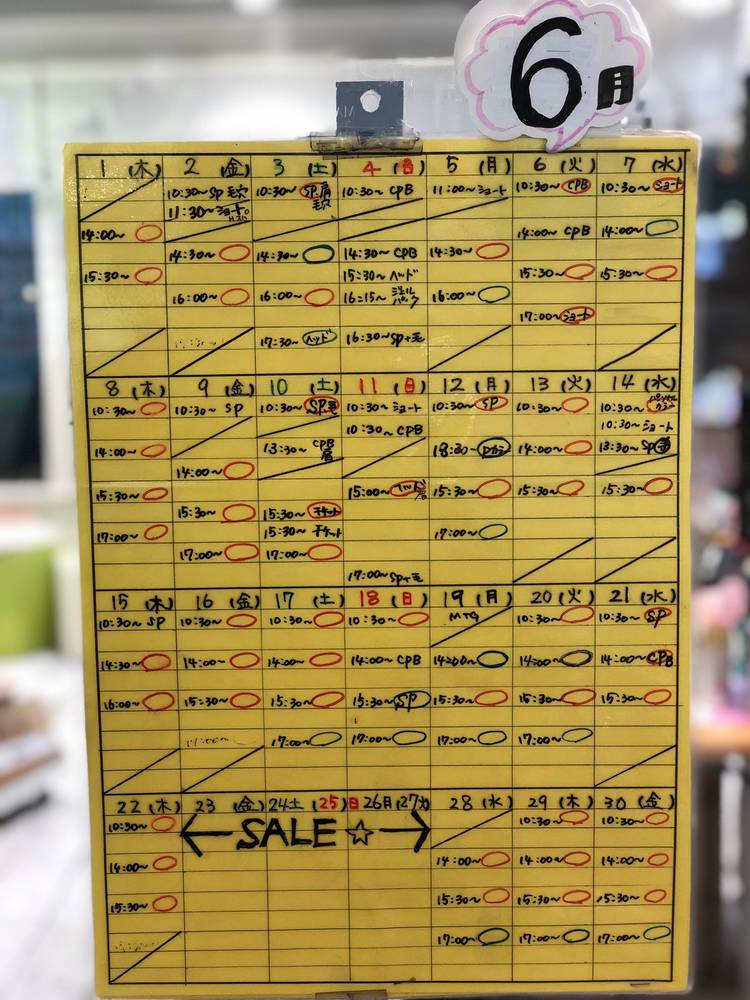 6月
1 (木) 2 (金) 3 (土) 4 (日) 5 (月) 6 (火) 7 (水)
10:30~ SP 毛穴 10:30~ SP.肩 10:30~ CPB 11:00~ショート 10:30~ CPB 10:30~ ショート
11:30~ショート 毛穴
14:00~ 14:00~ CPB 14:00~
14:30~ 14:30~ 14:30~ CPB 14:30~
15:30~ 15:30~ ヘッド 15:30~ 15:30~
16:00~ 16:00~ 16:15~ 16:00~
17:00~ショート
17:30~ ヘッド 16:30~SP+毛
8 (木) 9 (金) 10 (土) 11 (日) 12 (月) 13 (火) 14 (水)
10:30~ 10:30~ SP 10:30~ SP毛 10:30~ ショート 10:30~ SP 10:30~ 10:30~
10:30~ CPB 10:30~ ショート
14:00~ 13:30~ CPB 肩 14:00~ 13:30~ SP
14:00~
15:30~ 15:00~ 15:30~ 15:30~ 15:30~
15:30~ 15:30~ チケット
17:00~ 15:30~ チケット 17:00~
17:00~ 17:00~
17:00~ SP+毛
15 (木) 16 (金) 17 (土) 18 (日) 19 (月) 20 (火) 21 (水)
10:30~ SP 10:30~ 10:30~ 10:30~ MTG 10:30~ 10:30~ SP
14:30~ 14:00~ 14:00~ 14:00~ CPB 14:00~ 14:00~ 14:00~ CPB
16:00~ 15:30~ 15:30~ 15:30~ SP 15:30~ 15:30~ 15:30~
17:00~ 17:00~ 17:00~ 17:00~ 17:00~
22 (木) 23 (金) 24土 (25)日 26月 (27火) 28 (水) 29 (木) 30 (金)
10:30~ SALE☆ 10:30~ 10:30~
14:00~ 14:00~ 14:00~ 14:00~
15:30~ 15:30~ 15:30~ 15:30~
17:00~ 17:00~ 17:00~